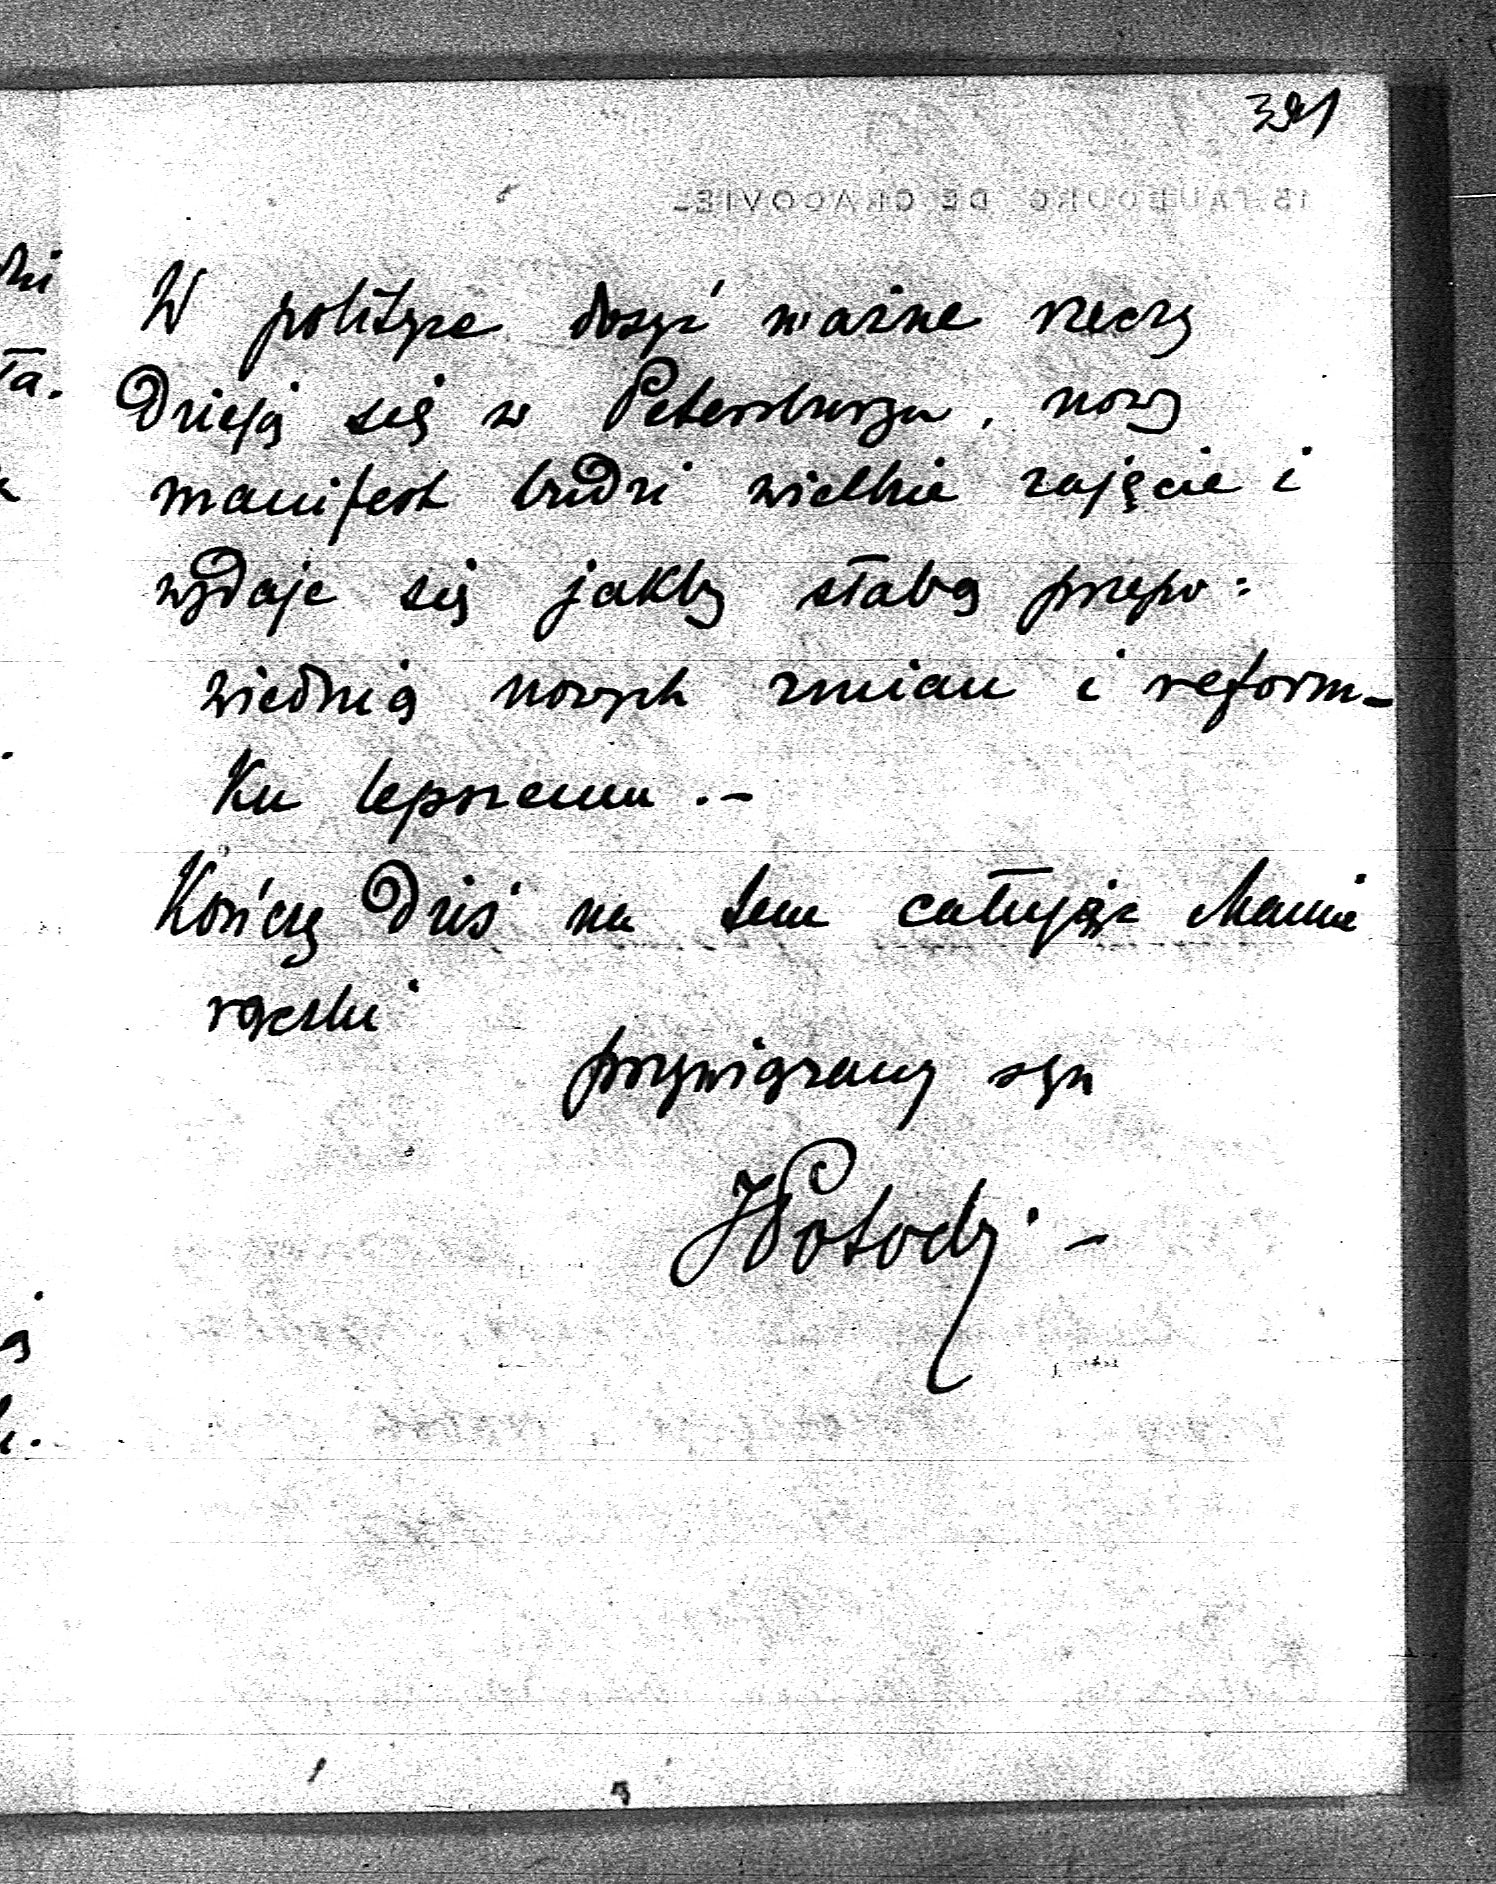 391
15, FAUBOURG DE CRACOVIE_
W polityce dosyć ważne rzeczy
Dzieją się w Petersburgu, nowy
manifest budzi wielkie zajęcie i
wydaje się jakby słabą przepo:
wiednią nowych zmian i reform_
Ku lepszemu . –
Kończę Dziś na tem całując Mamie
rączki
przywiązany syn
JPotocki –